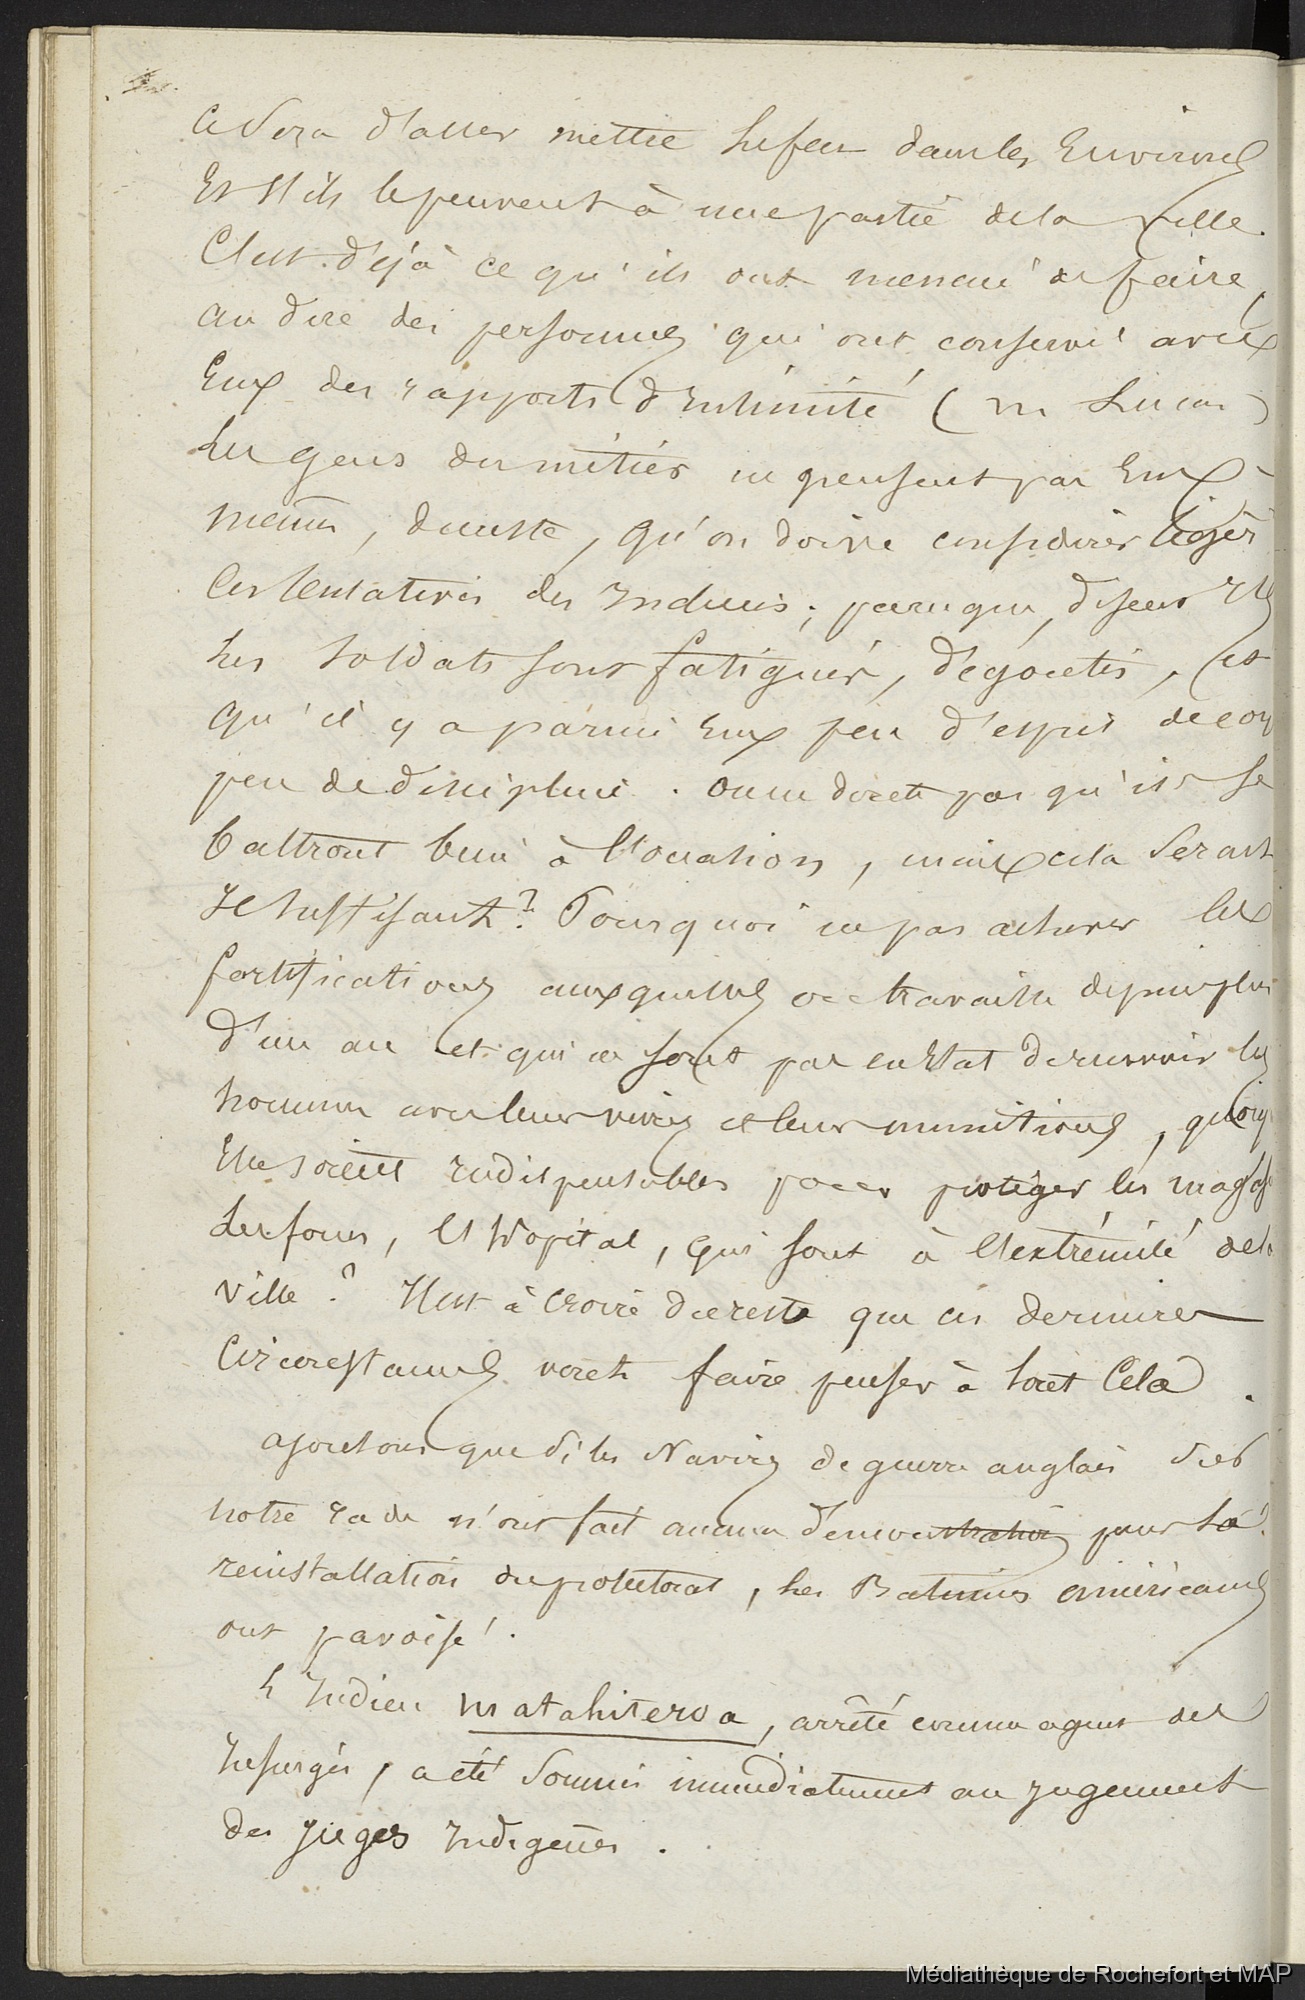 Ce sera d'aller mettre le feu dans les Environs
Et s'ils le peuvent à une partie de la ville.
C'est déjà ce qu'ils ont menacé de faire,
au dire des personnes qui ont conservé avec
Eux des rapports d'intimité (M Lucas)
Les gens du métier ne pensent pas Eux-
mêmes, du reste, qu'on doive considérer légèr
Ces tentatives des Indiens; parceque, disent ils
les soldats sont fatigués, dégoutés, et
qu'il y a parmi Eux peu d'esprit de corp
peu de discipline. On ne doute pas qu'ils se
battront bien à l'occasion, mais cela serait
il suffisant? Pourquoi ne pas achever les
fortifications auxquelles on travaille depuis plus
d'un an et qui ne sont pas en Etat de recevoir les
hommes avec leurs vivres et leurs munitions, quoiqu
Elles soient indispensables pour protéger les magas
Les fours, l'hopital, qui sont à l'extrémité de la
ville? Il est à croire du reste que ces dernières
Circonstances vont faire penser à tout Cela.
ajoutons que si les Navires de guerre anglais sur
notre rade n'ont fait aucune démonstration pour la
reinstallation du protectorat, les Batimens américains
ont pavoisé.
L'Indien Matahiteroa, arrêté comme agent des
Insurgés, a été soumis immédiatement au jugement
des juges Indigènes.
Médiathèque de Rochefort et MAP